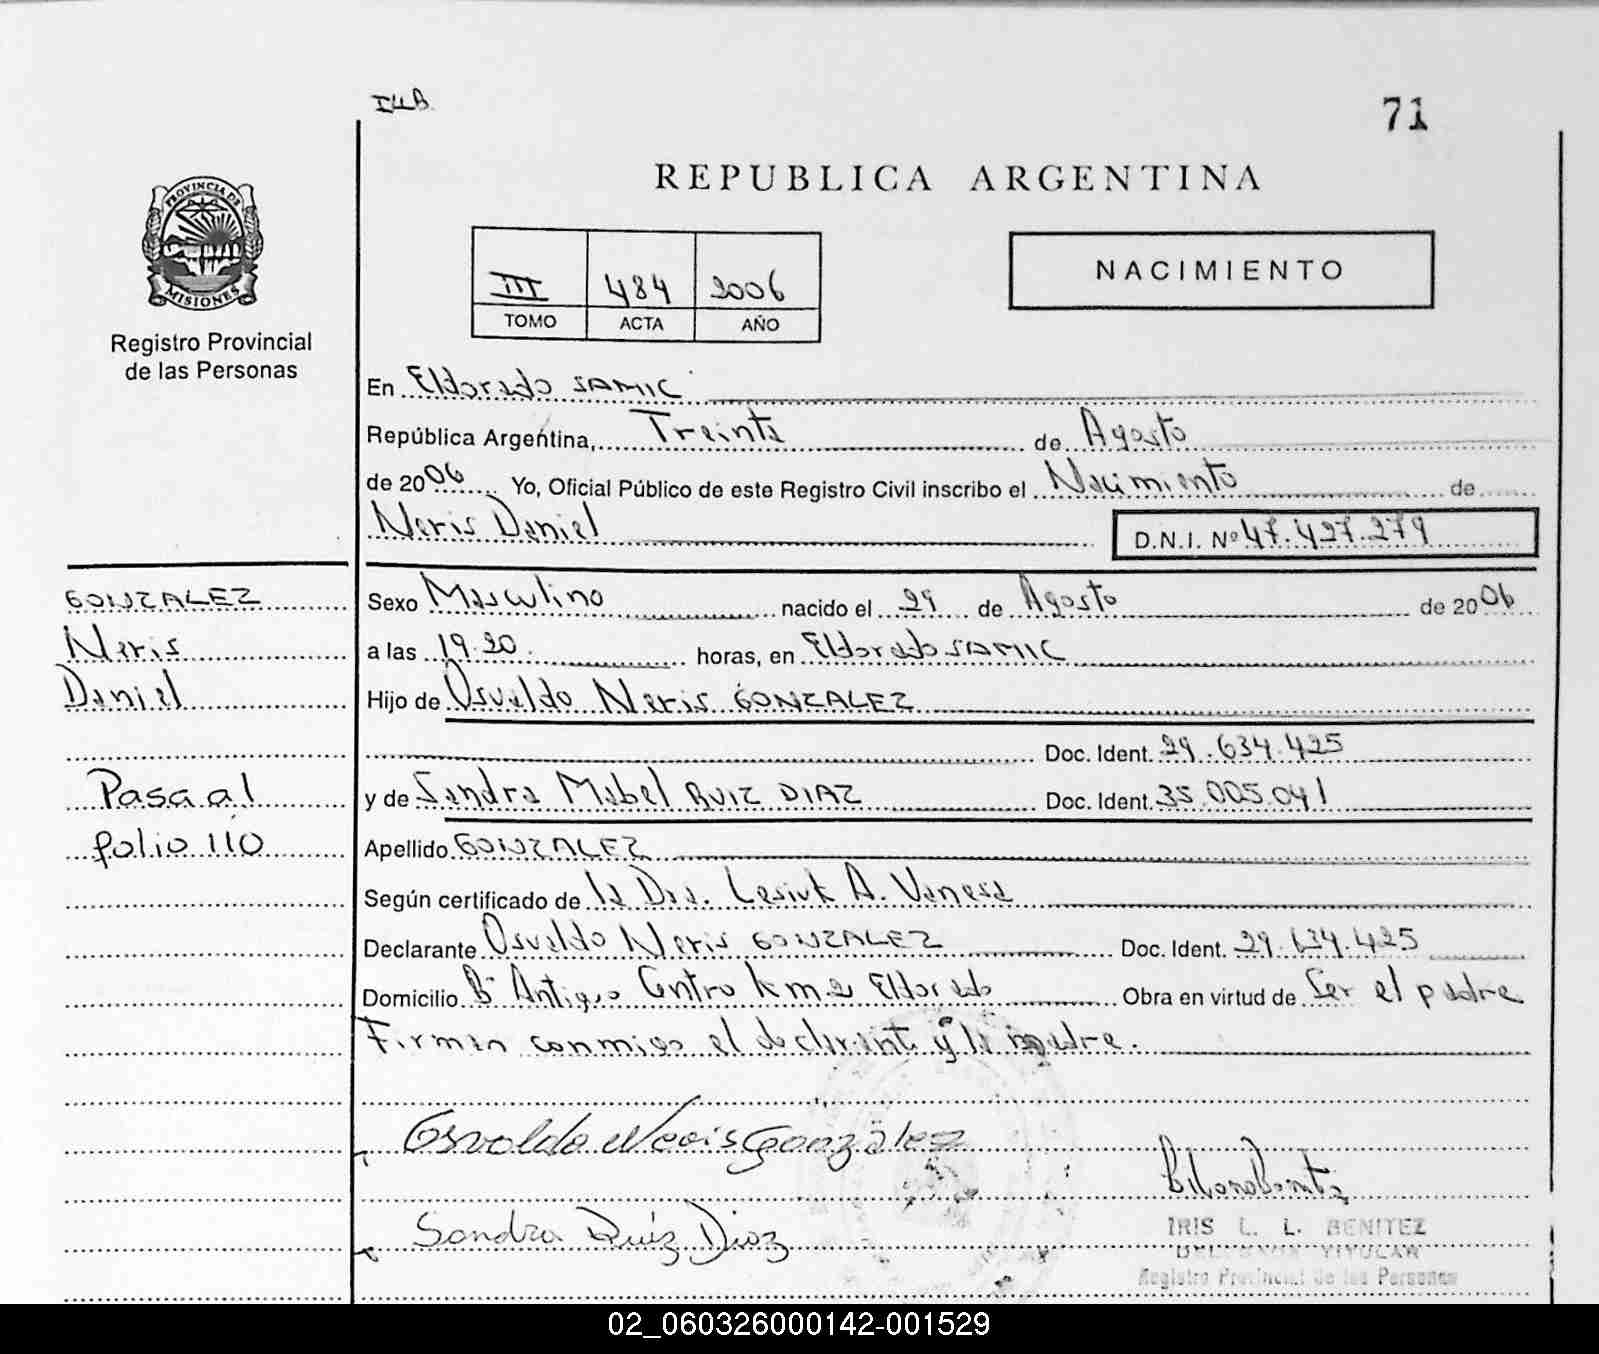 I4B.
71
PROVINCIA DE
MISIONES
Registro Provincial
de las Personas
REPUBLICA ARGENTINA
III 484 2006
TOMO ACTA AÑO
NACIMIENTO
En Eldorado SAMIC
República Argentina, Treinta de Agosto
de 2006 Yo, Oficial Público de este Registro Civil inscribo el Nacimiento de
Neris Daniel D.N.I. Nº 47.427.279
GONZALEZ
Neris
Daniel
Pasa al
folio 110
Sexo Masculino nacido el 29 de Agosto de 2006
a las 19.20 horas, en Eldorado SAMIC
Hijo de Osvaldo Neris GONZALEZ
Doc. Ident. 29.634.425
y de Sandra Mabel RUIZ DIAZ Doc. Ident. 35.005.041
Apellido GONZALEZ
Según certificado de la Dra. Lesiuk A. Vanesa
Declarante Osvaldo Neris GONZALEZ Doc. Ident. 29.634.425
Domicilio Bº Antiguo Centro km 2 Eldorado Obra en virtud de Ser el padre
Firman conmigo el declarante y la madre.
Osvaldo Neris González
Sandra Ruíz Diaz
IRIS L. L. BENITEZ
DELEGADA TITULAR
Registro Provincial de las Personas
02_060326000142-001529